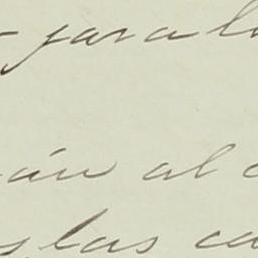 para l
án al
las ca